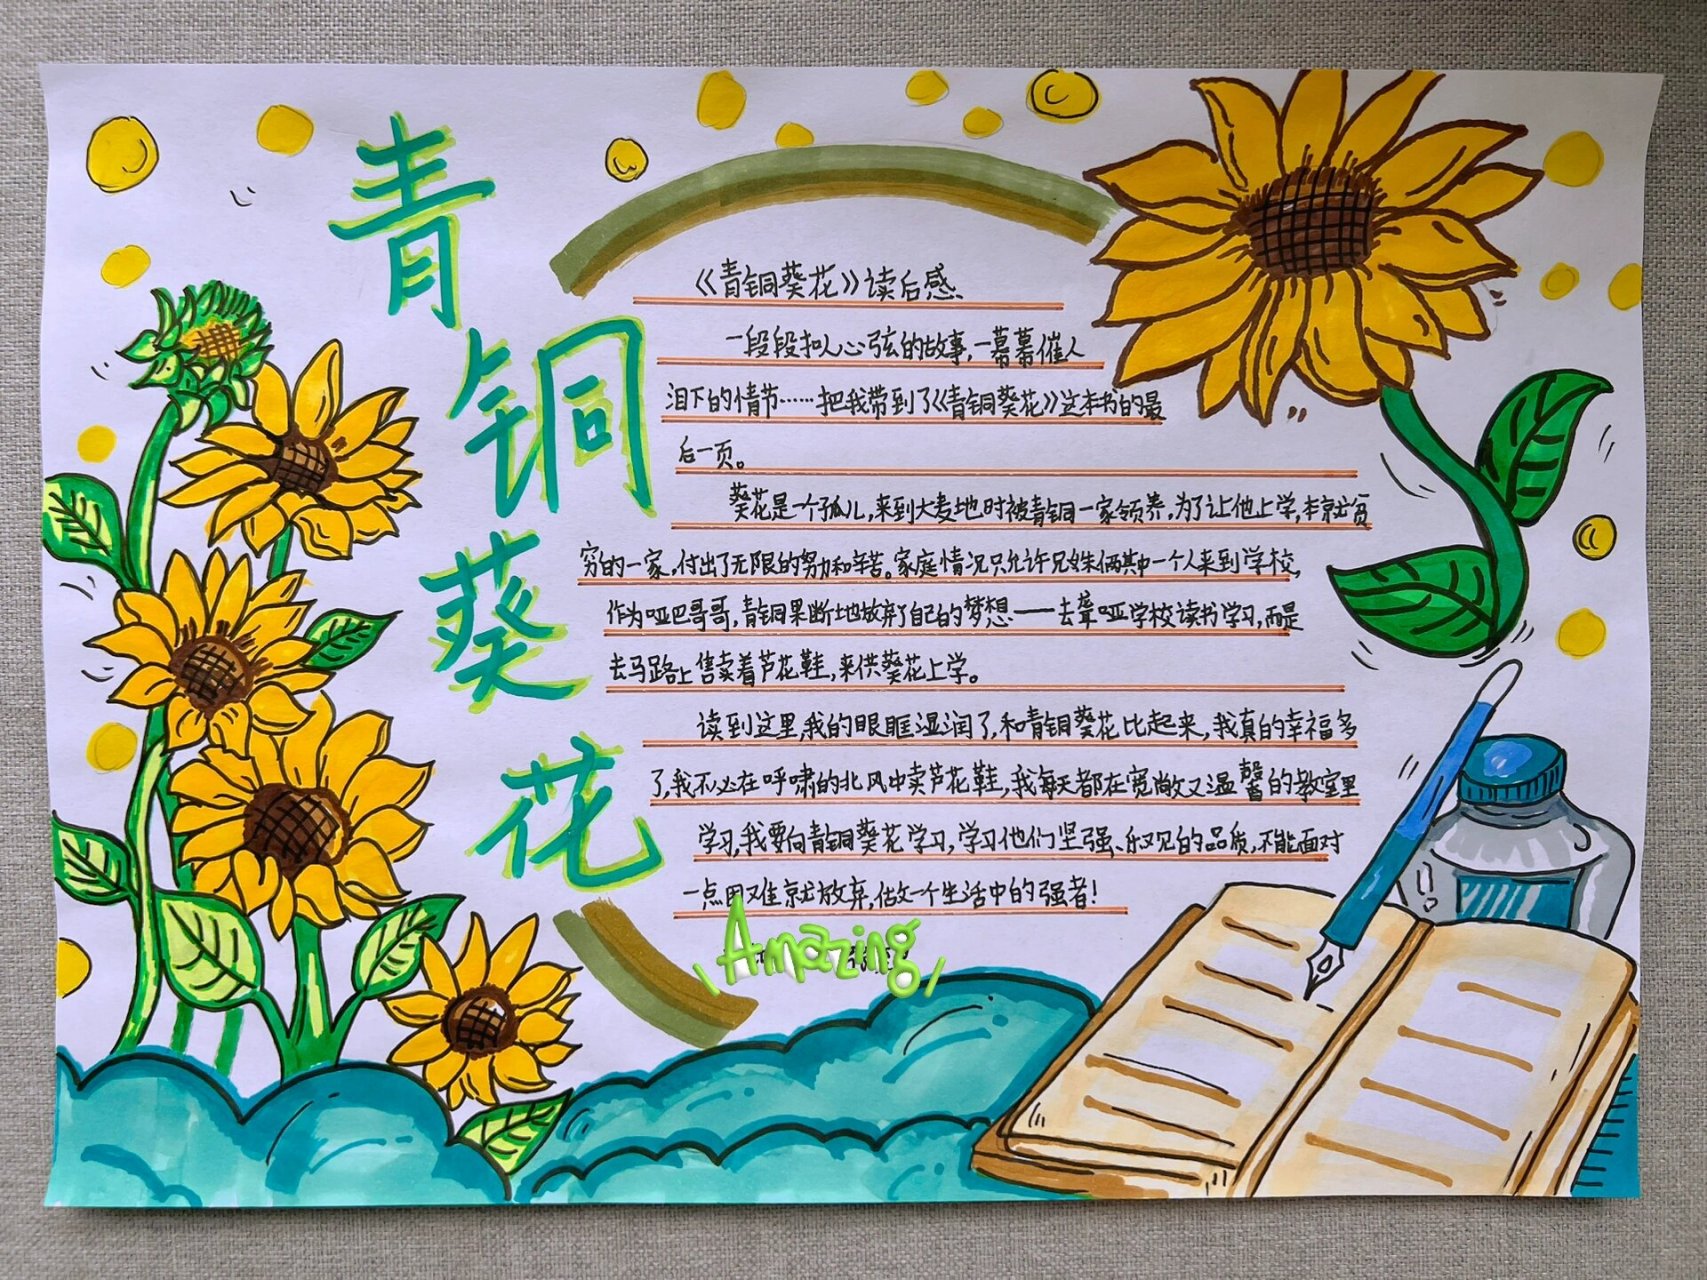 青铜葵花
《青铜葵花》读后感
一段段扣人心弦的故事,一幕幕催人
泪下的情节……把我带到了《青铜葵花》这本书的最
后一页。
葵花是一个孤儿,来到大麦地时被青铜一家领养,为了让他上学,本就贫
穷的一家,付出了无限的努力和辛苦。家庭情况只允许兄妹俩其中一个人来到学校,
作为哑巴哥哥,青铜果断地放弃了自己的梦想——去聋哑学校读书学习,而是
去马路上售卖着芦花鞋,来供葵花上学。
读到这里,我的眼眶湿润了,和青铜葵花比起来,我真的幸福多
了,我不必在呼啸的北风中卖芦花鞋,我每天都在宽敞又温馨的教室里
学习,我要向青铜葵花学习,学习他们坚强、乐观的品质,不能面对
一点困难就放弃,做一个生活中的强者!
Amazing